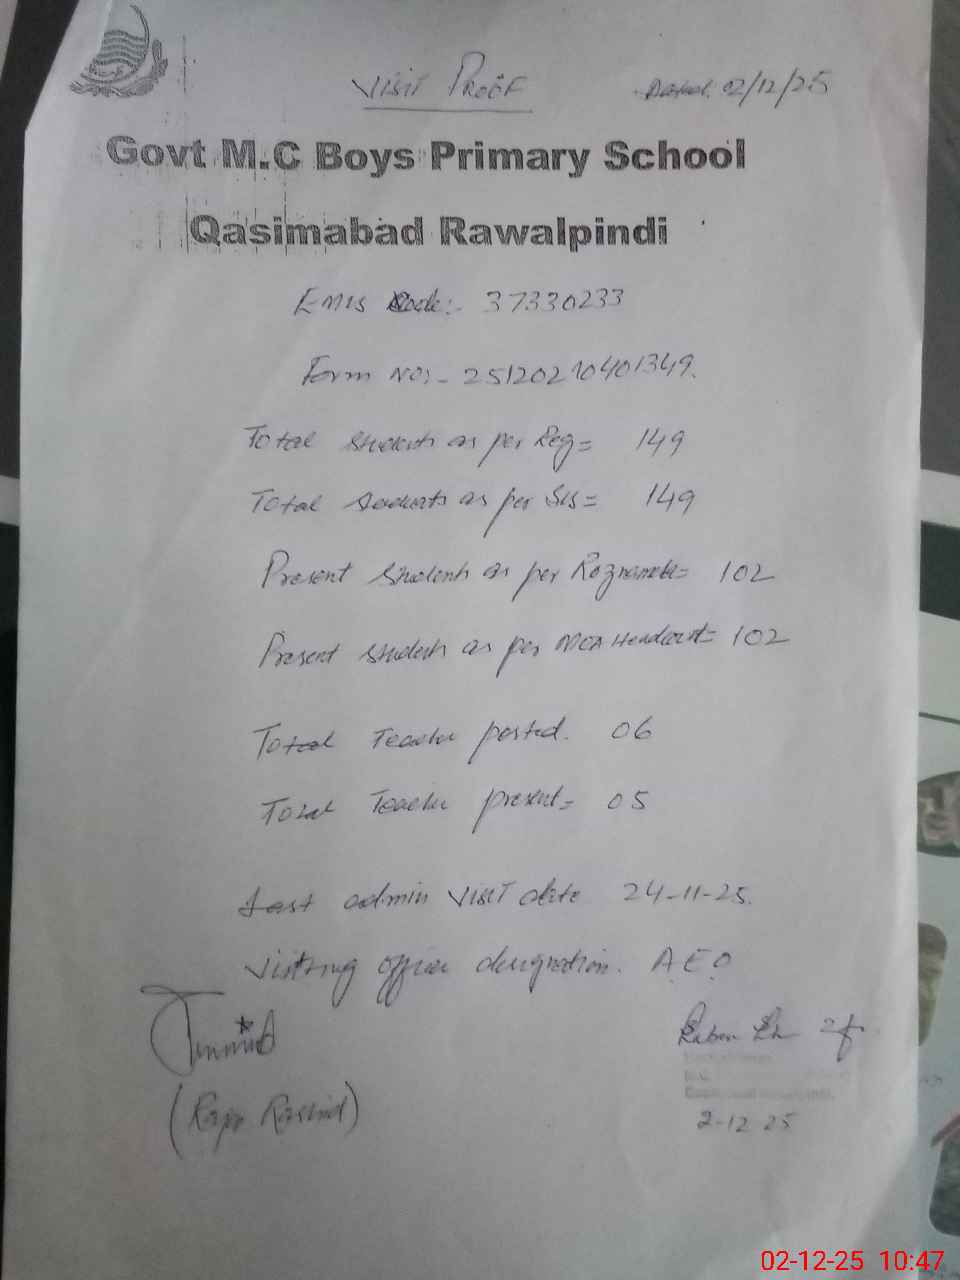 Visit Proof
Dated. 02/12/25
Govt M.C Boys Primary School
Qasimabad Rawalpindi
EMIS Code:- 37330233
Form No:- 25120210401349.
Total students as per Reg= 149
Total students as per SIS= 149
Present students as per Roznamcha= 102
Present students as per MEA Handout= 102
Total Teacher posted. 06
Total Teacher present= 05
Last admin visit date 24-11-25.
Visiting officer designation. AEO
(Raja Rashid)
2-12 25
02-12-25 10:47